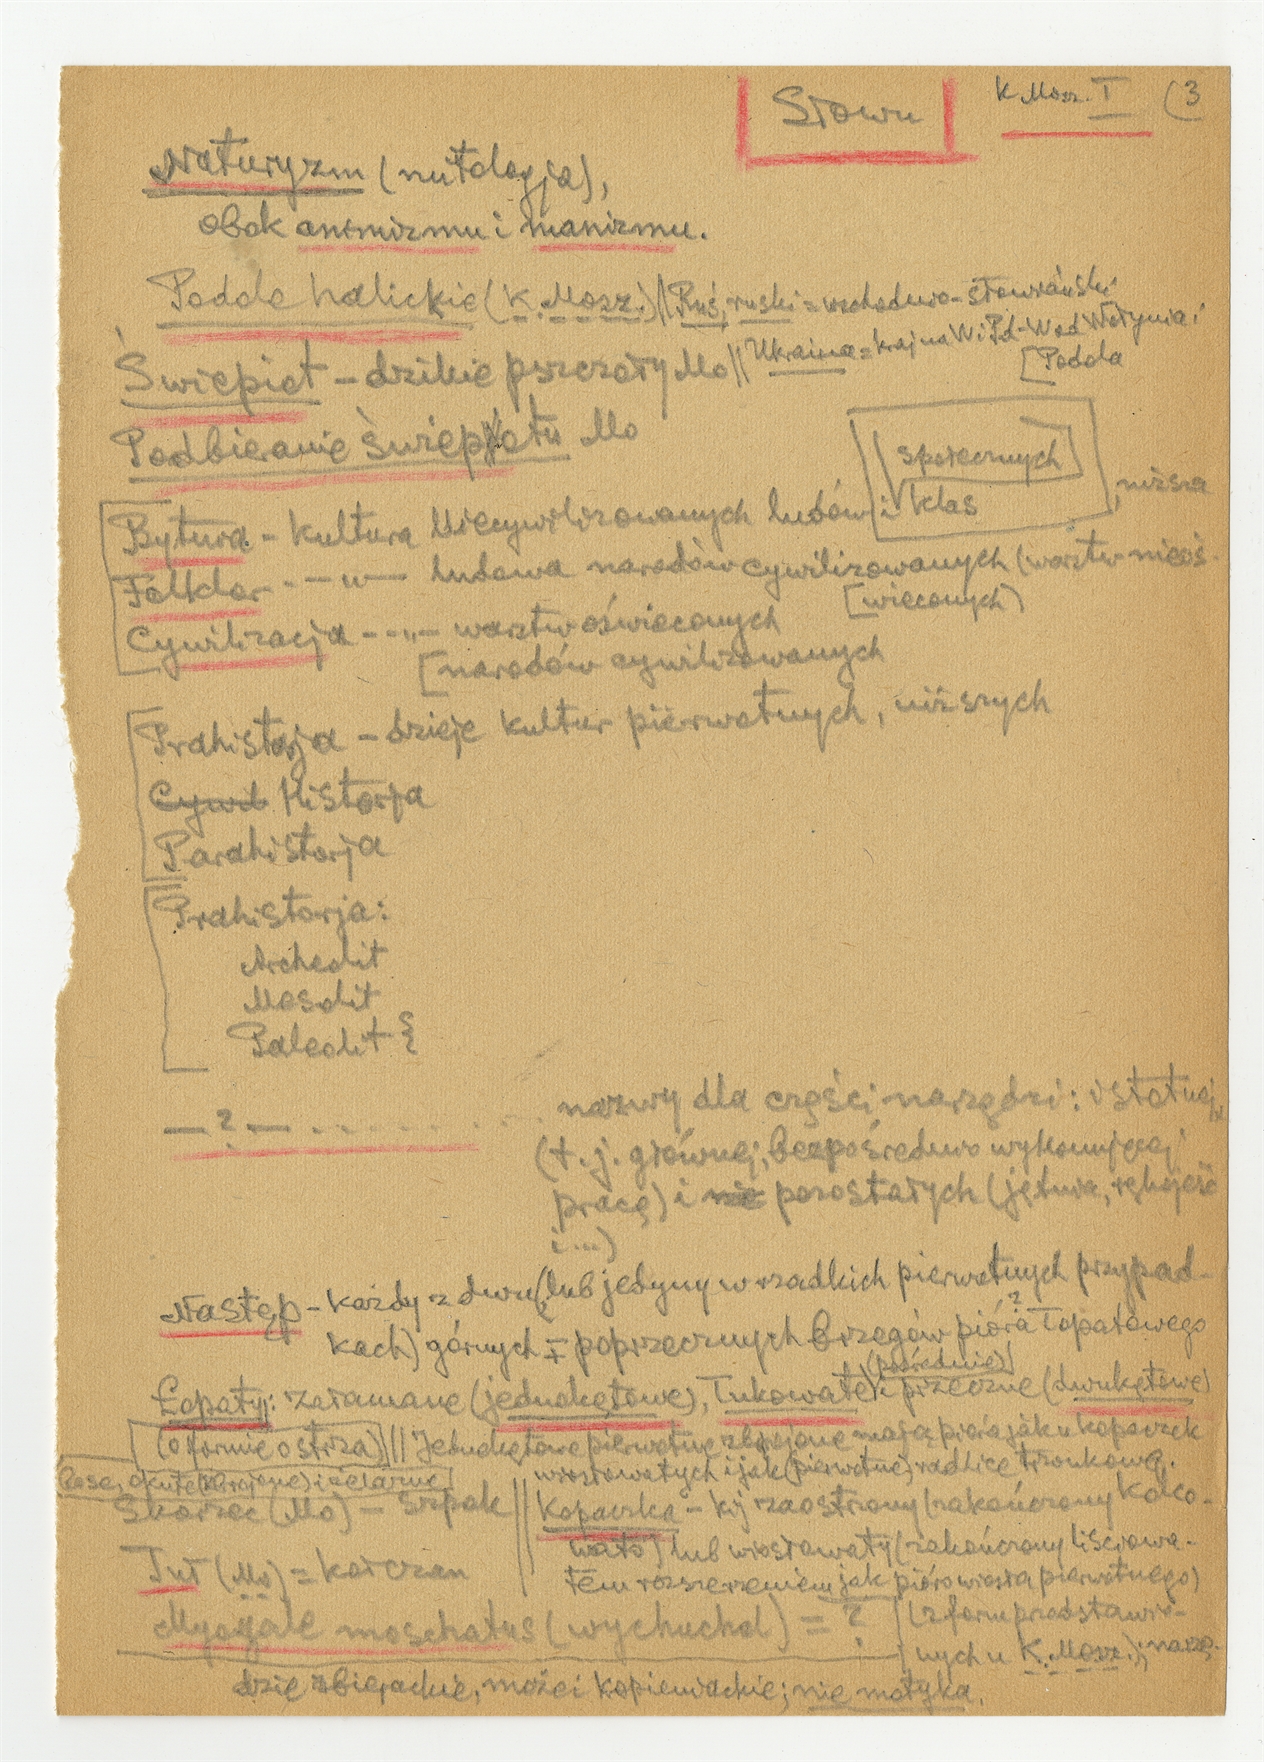 Słowu
K. Mosz. I (3
Naturyzm (mitologja),
obok animizmu i manizmu.
Podole halickie (K. Mosz.) || Ruś, ruski = wschodnio-słowiański
Ukraina = kraj na W i Pd-W od Wołynia i
[Podola
Świepiet – dzikie pszczoły Mo ||
Podbieranie świepietu Mo
społecznych
Bytura – kultura niecywilizowanych ludów i klas , niższa
Folklor - – „ – ludowa narodów cywilizowanych (warstw nieoś-
[wieconych)
Cywilizacja - - „ – warstw oświeconych
[narodów cywilizowanych
Prahistorja – dzieje kultur pierwotnych, niższych
Cywil Historja
Parahistorja
Prahistorja:
Archeolit
Mesolit
Paleolit
— ? — nazwy dla części narzędzi: istotnej
(t. j. głównej, bezpośrednio wykonującej
pracę) i nie pozostałych (jętwa, rękojeść
i ...)
Następ – każdy z dwu (lub jedyny w rzadkich pierwotnych przypad-
kach) górnych poprzecznych brzegów pióra ? łopatowego
(pośrednie)
Łopaty: załamane (jednokętowe), Łukowate i przeczne (dwukętowe)
(o formie ostrza) ||| Jednokętowe pierwotne zbrojone mają pióra jak u kopaczek
wiosłowatych i jak (pierwotne) radlice trzonkowe.
bose, okute (zbrojone) i żelazne
Skorzec (Mo) – szpak || Kopaczka – kij zaostrzony (zakończony kolco-
wato) lub wiosłowaty (zakończony liściowa-
Tuł (Mo) = kołczan
tem rozszerzeniem jak pióro wiosła pierwotnego)
Myogale moschatus (wychuchol) = ? (z form przedstawio-
nych u K. Mosz.); narzę-
dzie zbierackie, może i kopieniackie; nie motyka.